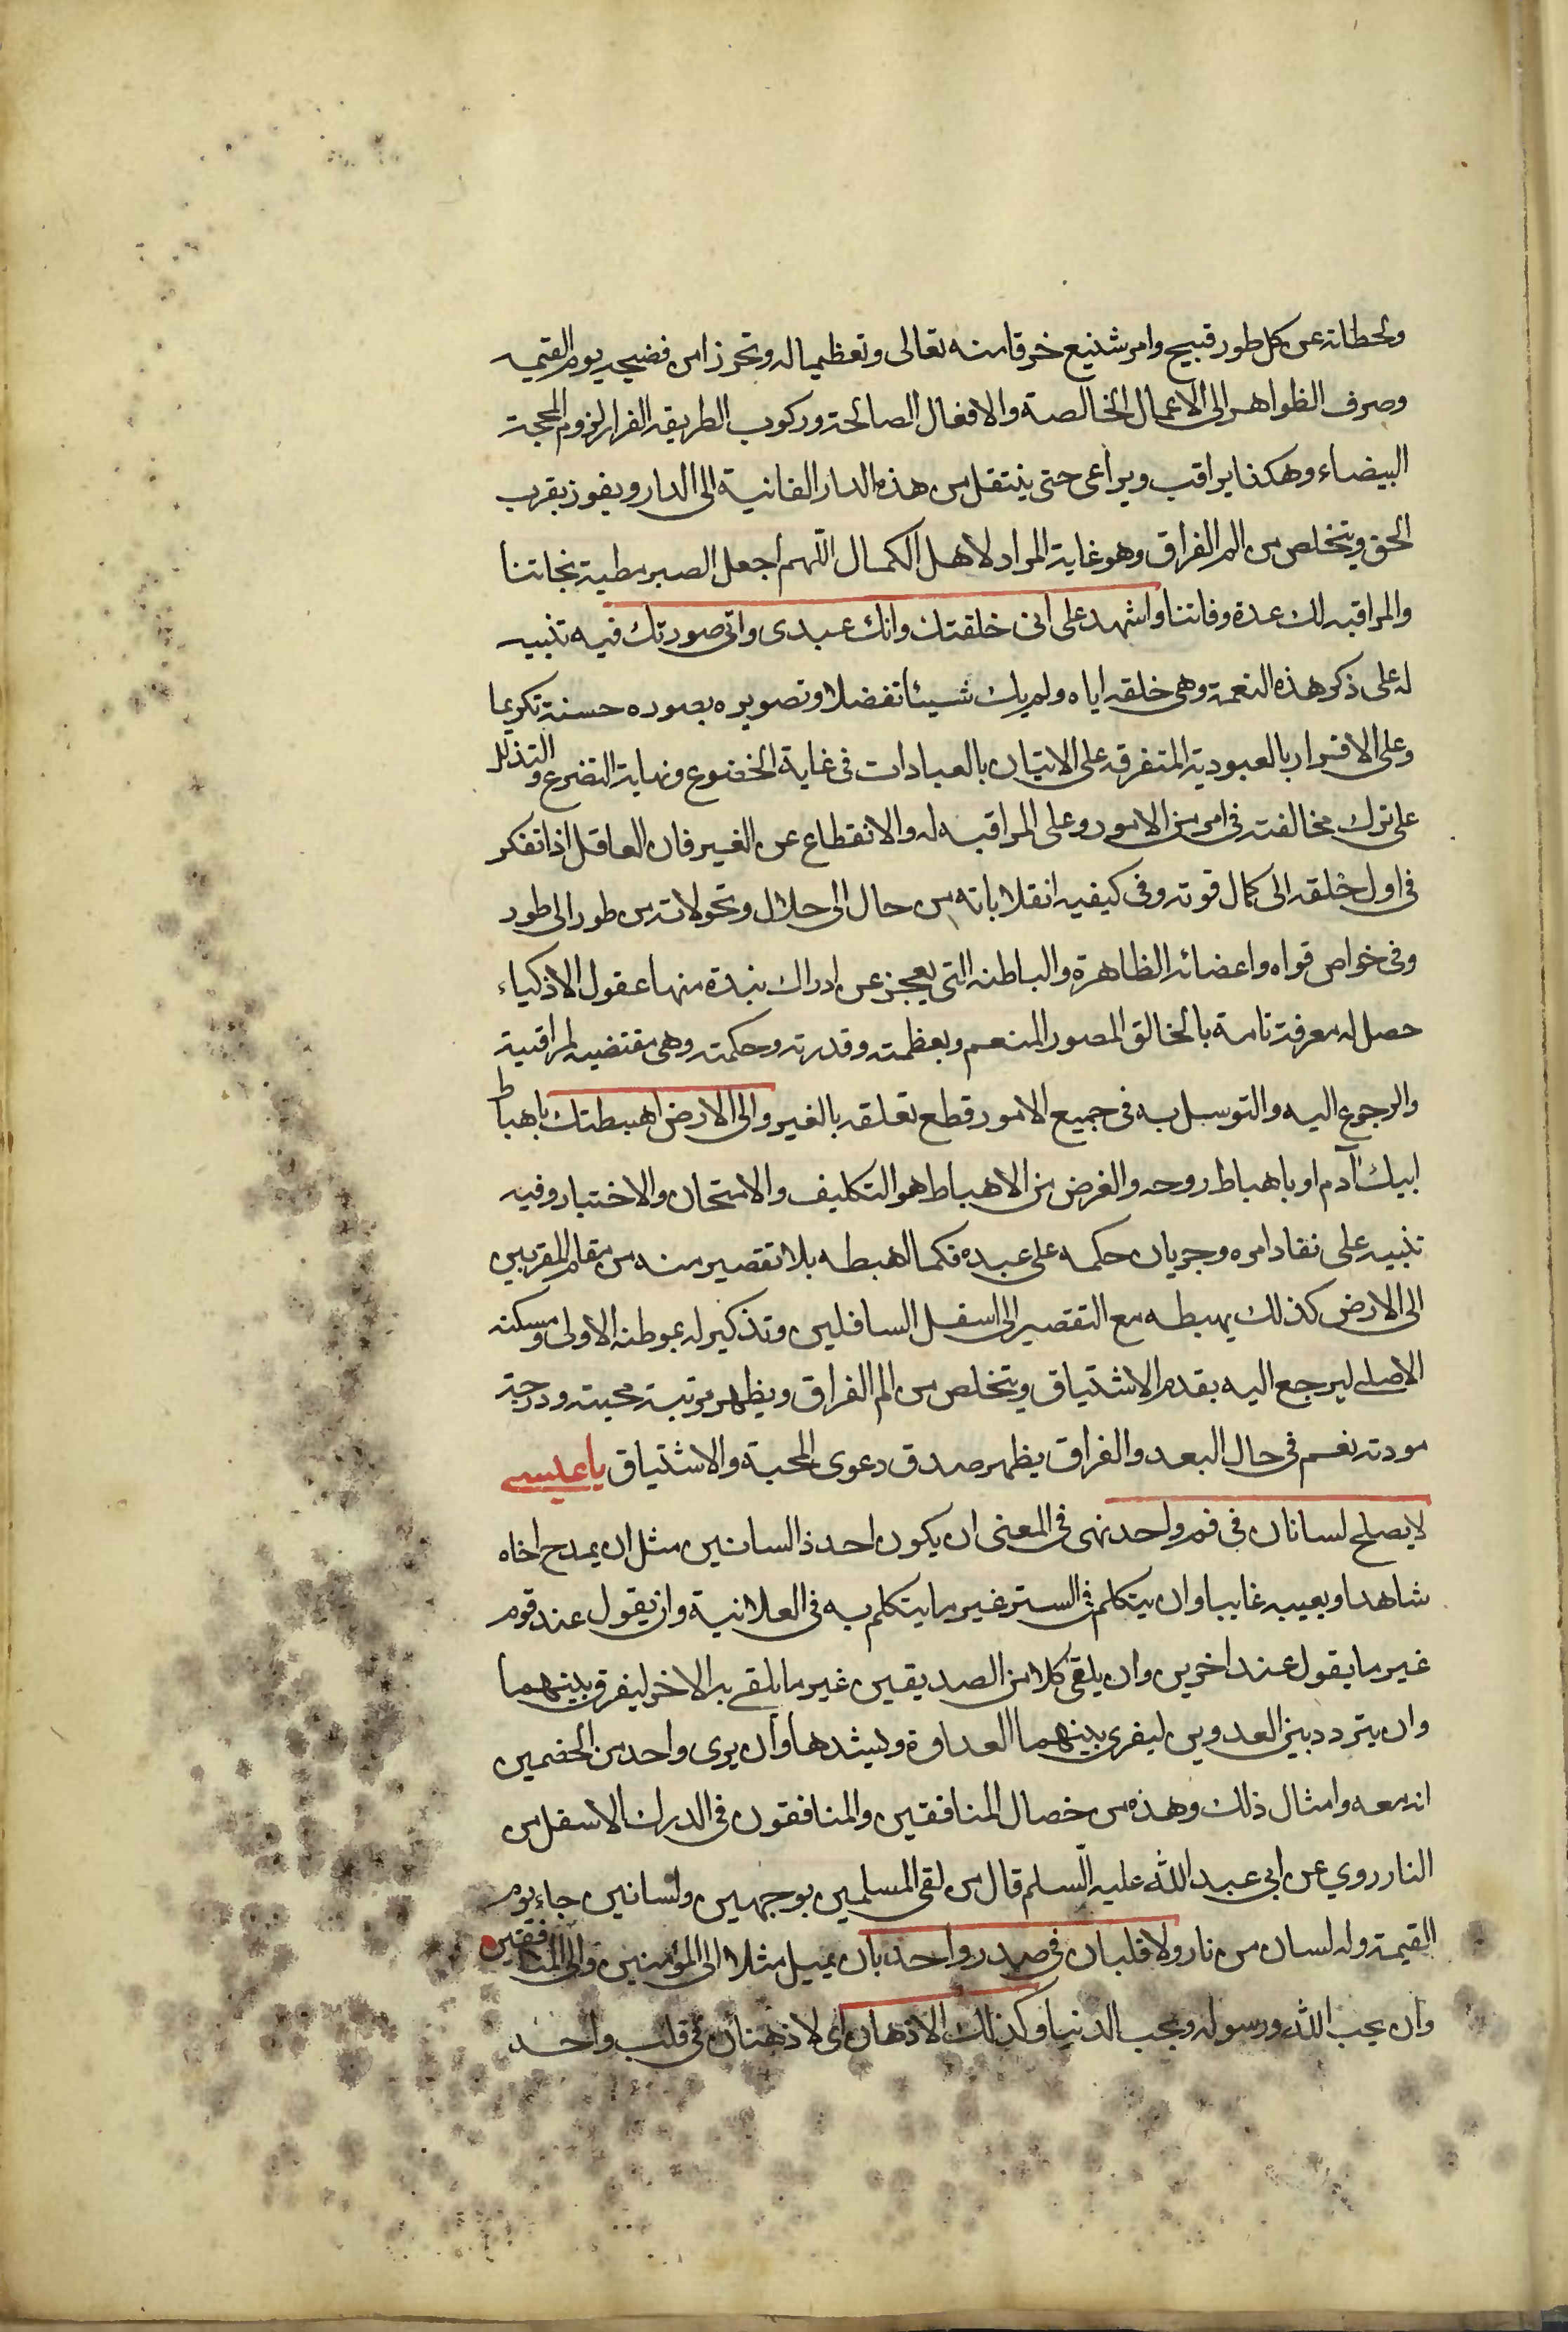 ولحظاته عن كل طور قبيح وامر شنيع خرقا منه تعالى وتعظيما له وتحرزا من فضيحه يوم القيمه
وصرف الظواهر الى الاعمال الخالصة والافعال الصالحة وركوب الطريقه الغرا ولزوم المحجة
البيضاء وهكذا يراقب ويراعى حتى ينتقل من هذه الدار الفانية الى الدار ويفوز بقرب
الحق ويتخلص من الم الفراق وهو غاية المراد لاهل الكمال اللهم اجعل الصبر مطية نجاتنا
والمراقبه لك عدة وفاتنا واشهد على انى خلقتك وانك عبدى وانى صورتك فيه تنبيه
له على ذكر هذه النعمة وهى خلقه اياه ولم يك شيئا تفضلا وتصويره بصوره حسنة تكريما
وعلى الاقرار بالعبودية المتفرقه على الاتيان بالعبادات فى غاية الخضوع ونهاية التضرع والتذلل
على ترك مخالفته فى امر من الامور وعلى المراقبه له والانقطاع عن الغير فان العاقل اذا تفكر
فى اول خلقه الى كمال قوته وفى كيفيه انقلاباته من حال الى حلال وتحولاته من طور الى طور
وفى خواص قواه واعضائه الظاهرة والباطنه التى يعجز عن ادراك نبذة منها عقول الاذكياء
حصل له معرفة تامة بالخالق المصور المنعم وبعظمته وقدرته وحكمته وهى مقتضيه لمراقبة
والرجوع اليه والتوسل به فى جميع الامور قطع تعلقه بالغير والى الارض اهبطتك باهباط
ابيك آدم او باهباط روحه والغرض من الاهباط هو التكليف والامتحان والاختبار وفيه
تنبيه على نفاد امره وجريان حكمه على عبده فكما اهبطه بلا تقصير منه من مقام المقربين
الى الارض كذلك يهبطه مع التقصير الى اسفل السافلين وتذكير له بموطنه الاولى ومسكنه
الاصلى ليرجع اليه بقدم الاشتياق ويتخلص من الم الفراق ويظهر مرتبة محبته ودرجة
مودته نعم فى حال البعد والفراق يظهر صدق دعوى المحبة والاشتياق يا عيسى
لا يصلح لسانان فى فم واحد نهى فى المعنى ان يكون احد ذا لسانين مثل ان يمدح اخاه
شاهدا ويعيبه غايبا وان يتكلم فى الستر غير ما يتكلم به فى العلانية وان يقول عند قوم
غير ما يقول عند اخرين وان يلقى كلا من الصديقين غير ما يلقى به الاخر ليفرق بينهما
وان يتردد بين العدوين ليغرى بينهما العداوة ويشدها وان يرى واحد من الخصمين
انه معه وامثال ذلك وهذه من خصال المنافقين والمنافقون فى الدرك الاسفل من
النار روي عن ابي عبد الله عليه السلم قال من لقى المسلمين بوجهين ولسانين جاء يوم
القيمة وله لسان من نار ولا قلبان فى صدر واحد بان يميل مثلا الى المؤمنين والى المنافقين
وان يحب الله ورسوله ويحب الدنيا وكذلك الاذهان اى لا ذهنان فى قلب واحد